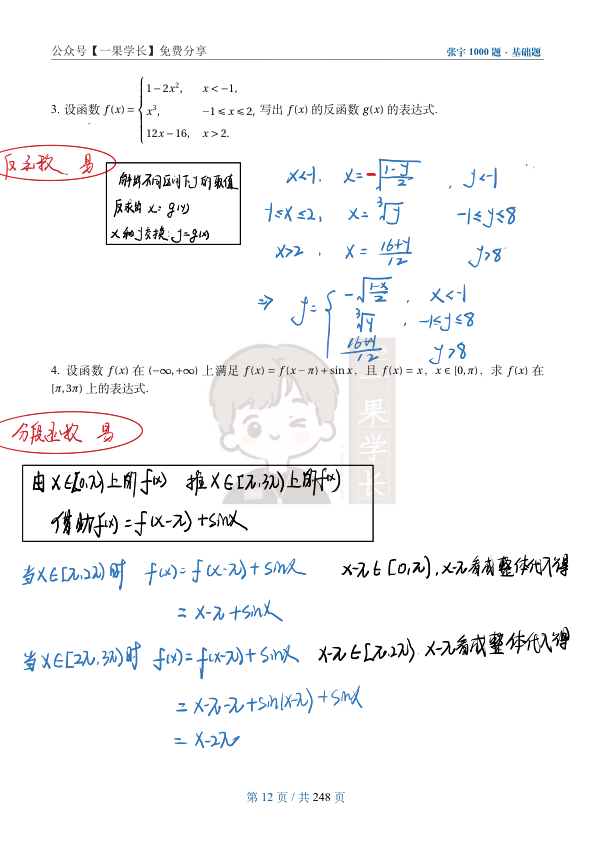 公众号【一果学长】免费分享 张宇 1000 题 · 基础题
3. 设函数 f(x) = { 1 − 2x², x < −1,
x³, −1 ⩽ x ⩽ 2, 写出 f(x) 的反函数 g(x) 的表达式.
12x − 16, x > 2.
反函数 易
解出不同区间下y的取值
反求出 x = g(y)
x和y交换: y = g(x)
x<-1. x = -√((1-y)/2) , y<-1
-1≤x≤2, x = ³√y -1≤y≤8
x>2 , x = (16+y)/12 y>8
⇒ y = { -√((1-x)/2) , x<-1
³√y , -1≤y≤8
(16+y)/12 y>8
4. 设函数 f(x) 在 (−∞,+∞) 上满足 f(x) = f(x − π) + sin x, 且 f(x) = x, x ∈ [0,π), 求 f(x) 在
[π,3π) 上的表达式.
一果学长
分段函数 易
由 x∈[0,π)上的f(x) 推 x∈[π,3π)上的f(x)
借助f(x) = f(x-π) + sinx
当x∈[π,2π)时 f(x) = f(x-π) + sinx x-π∈[0,π), x-π看成整体代入得
= x-π + sinx
当x∈[2π,3π)时 f(x) = f(x-π) + sinx x-π∈[π,2π) x-π看成整体代入得
= x-π-π + sin(x-π) + sinx
= x-2π
第 12 页 / 共 248 页